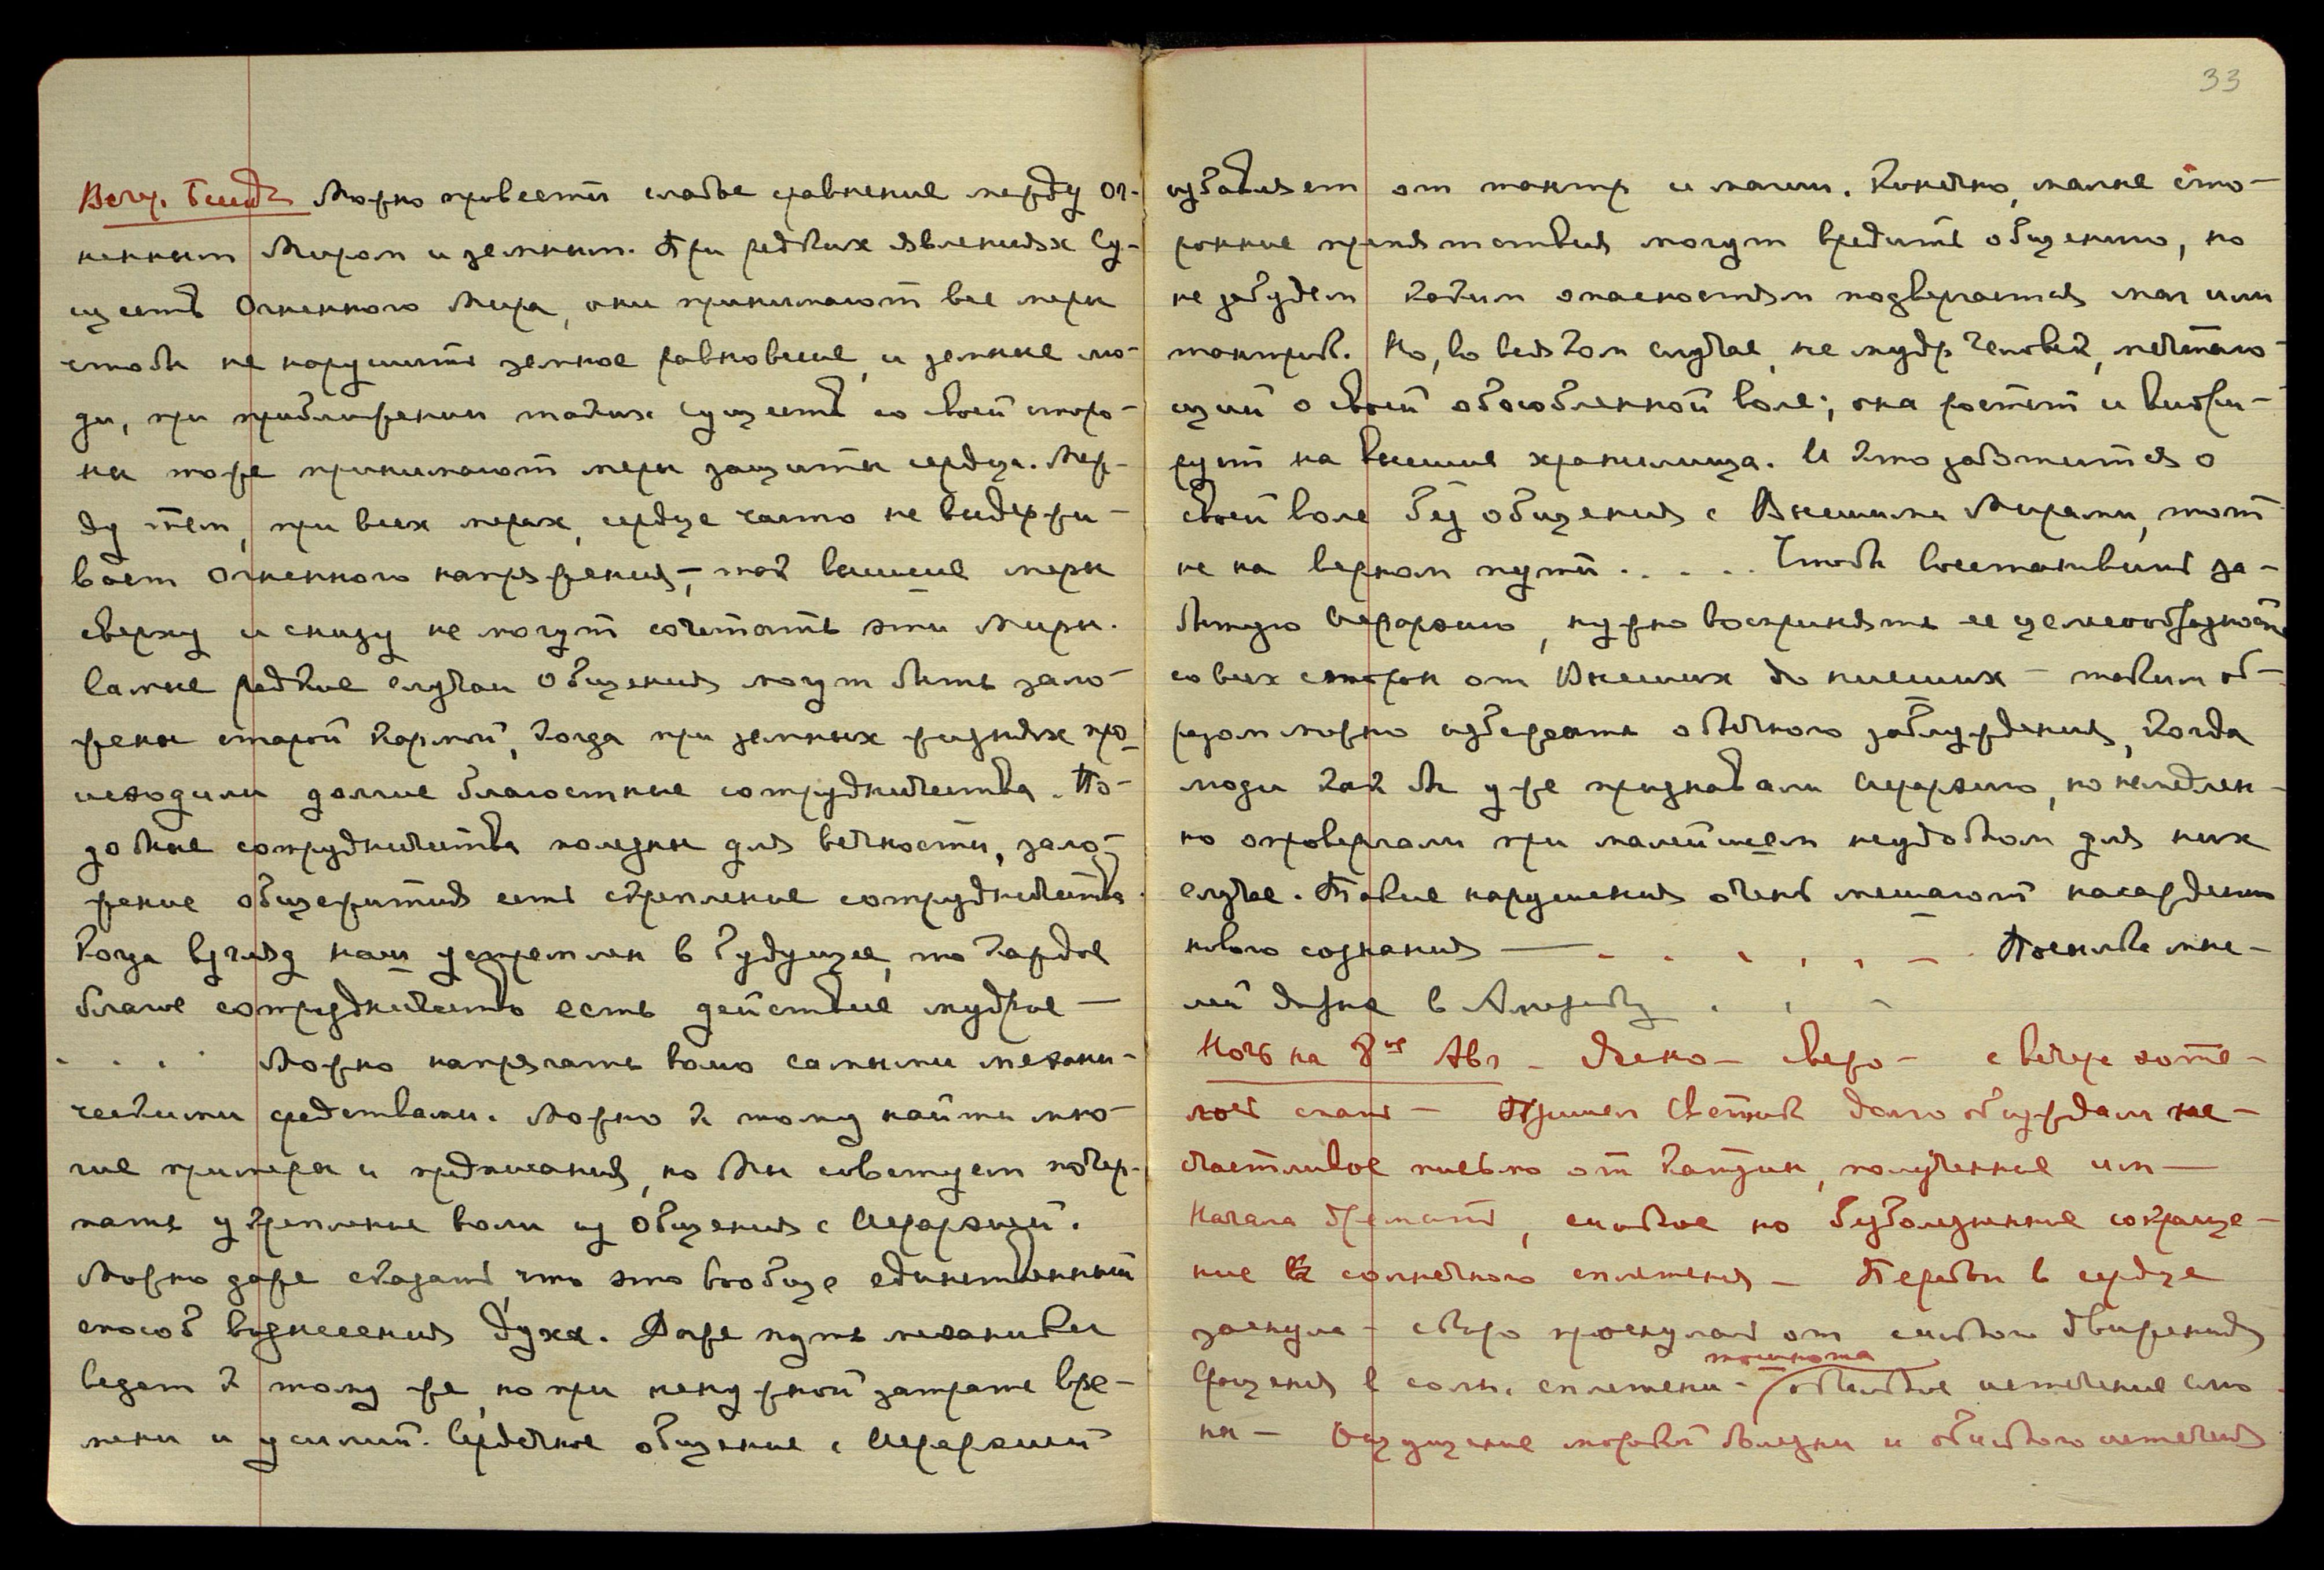 33
Вечер. Беседа Можно провести слабое сравнение между Ог-
ненным Миром и земным. При редких явлениях Су-
ществ Огненного Мира, они принимают все меры
чтобы не нарушить земное равновесие, и земные лю-
ди, при приближении таких Существ со своей сторо-
ны тоже принимают меры защиты сердца. Меж-
ду тем, при всех мерах, сердце часто не выдержи-
вает Огненного напряжения, – так высшие меры
сверху и снизу не могут сочетать эти Миры.
Самые редкие случаи Общения могут быть зало-
жены старой Кармой, когда при земных жизнях про-
исходили долгие благостные сотрудничества. По-
добные сотрудничества полезны для вечности, зало-
жение общежития есть скрепление сотрудничества.
Когда взгляд наш устремлен в будущее, то каждое
благое сотрудничество есть действие мудрое —
. . . . Можно напрягать волю самыми механи-
ческими средствами. Можно к тому найти мно-
гие примеры и предписания, но Мы советуем почер-
пать укрепление воли из Общения с Иерархией.
Можно даже сказать, что это вообще единственный
способ вознесения духа. Даже путь механики
ведет к тому же, но при ненужной затрате вре-
мени и усилий. Сердечное общение с Иерархией
избавляет от тантр и магии. Конечно, малые сто-
ронние препятствия могут вредить общению, но
не забудем каким опасностям подвергается маг или
тантрик. Но, во всяком случае, не мудр человек, мечтаю-
щий о своей обособленной воле; она растет и вибри-
рует на высшие хранилища. И кто заботится о
своей воле без общения с Высшими Мирами, тот
не на верном пути . . . . . Чтобы восстановить за-
бытую Иерархию, нужно воспринять ее целесообразность
со всех сторон от Высших до низших — таким об-
разом можно избежать обычного заблуждения, когда
люди как бы уже признавали Иерархию, но немедлен-
но опровергали при малейшем неудобном для них
случае. Такие нарушения очень мешают насаждению
нового сознания — . . . . . . — Посильте мне-
ний даже в Америку . . .
Ночь на 8ое Авг – Ясно – свежо – с вечера хоте-
лось спать — Пришел Светик долго обсуждали не-
счастливое письмо от , полученное им —
Начала дремать, сильное но безболезненное сокраще-
ние солнечного сплетения — Перебои в сердце
заснула – скоро проснулась от сильного движения
вращения в солн. сплетении – тошнота обильное истечение слю-
ны — Ощущение морской болезни и обильного истечения